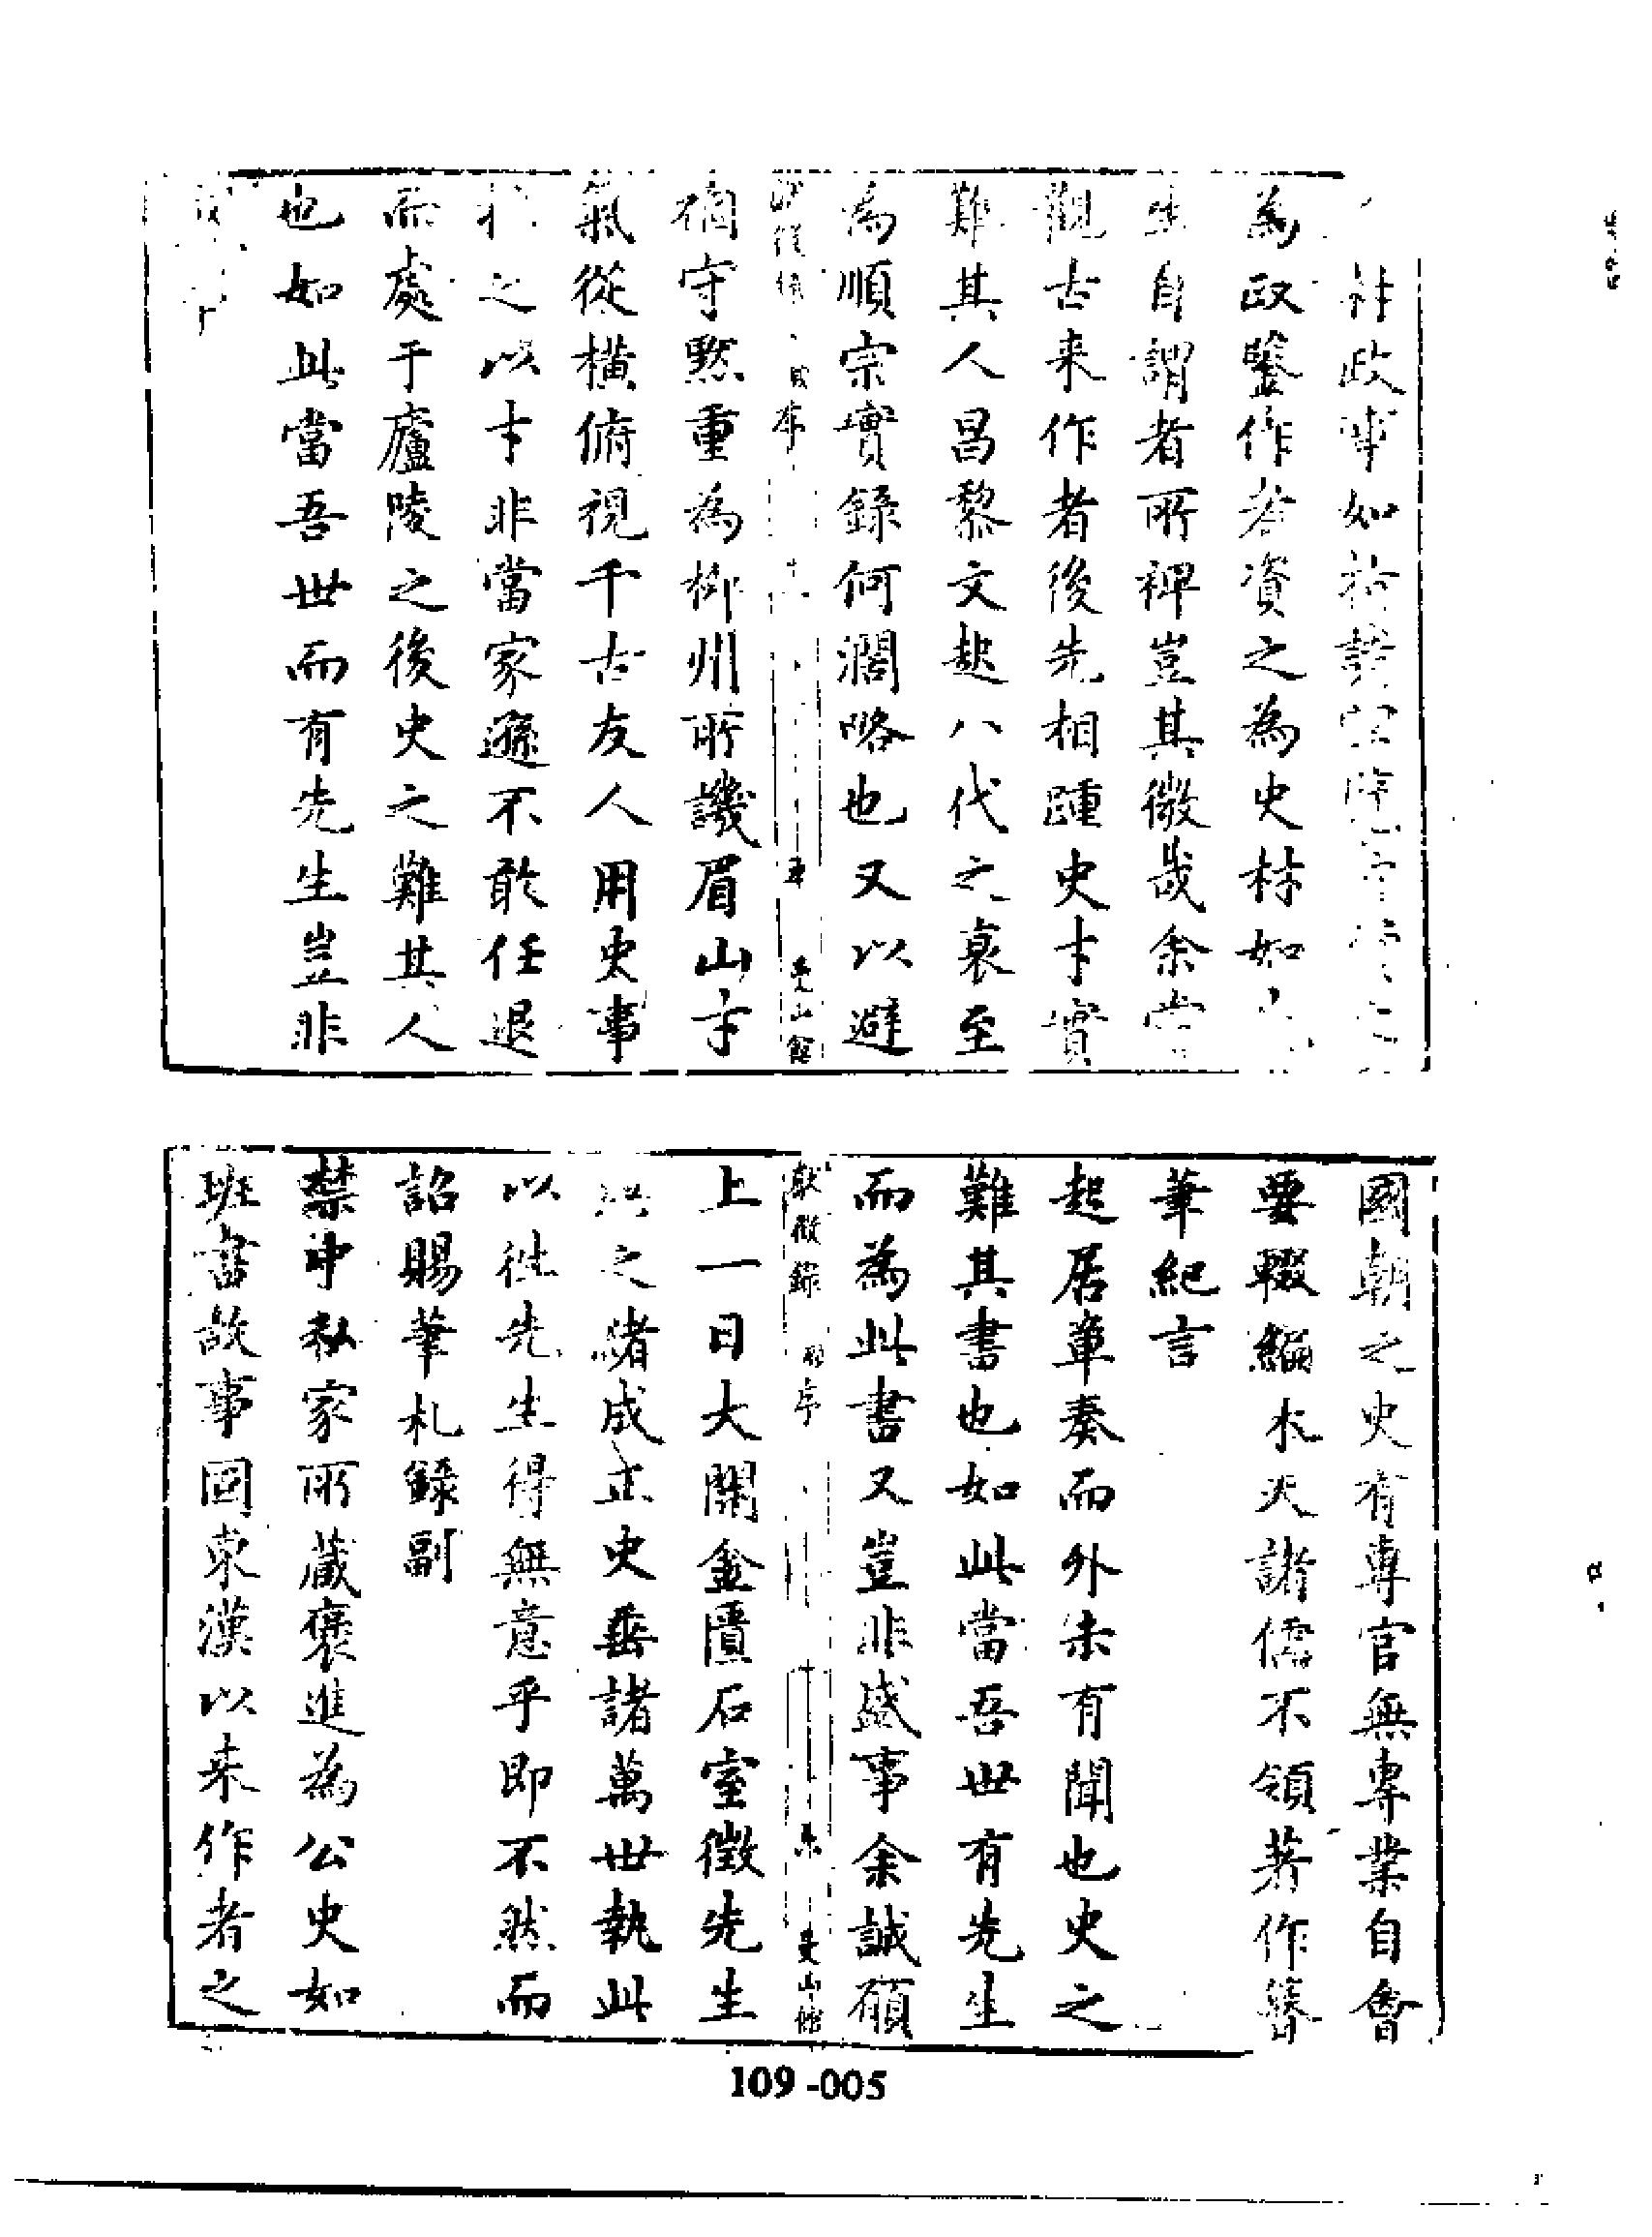 政事如
為政鑒作者資之為史材如
生自謂者所裨豈其微哉余嘗
觀古来作者後先相踵史才實
難其人昌黎文起八代之衰至
為順宗實錄何濶略也又以避
禍守默重為柳州所譏眉山才
氣從横俯視千古友人用史事
之以才非當家遜不敢任退
而處于廬陵之後史之難其人
也如此當吾世而有先生豈非
國朝之史有專官無專業自會
要輟編木天諸儒不領著作簪
筆紀言
起居章奏而外未有聞也史之
難其書也如此當吾世有先生
而為此書又豈非盛事余誠願
獻徵錄 序 曼山館
上一日大開金匱石室徵先生
之緒成正史垂諸萬世執此
以徃先生得無意乎即不然而
詔賜筆札錄副
禁中私家所蔵褒進為公史如
班書故事固東漢以来作者之
109-005